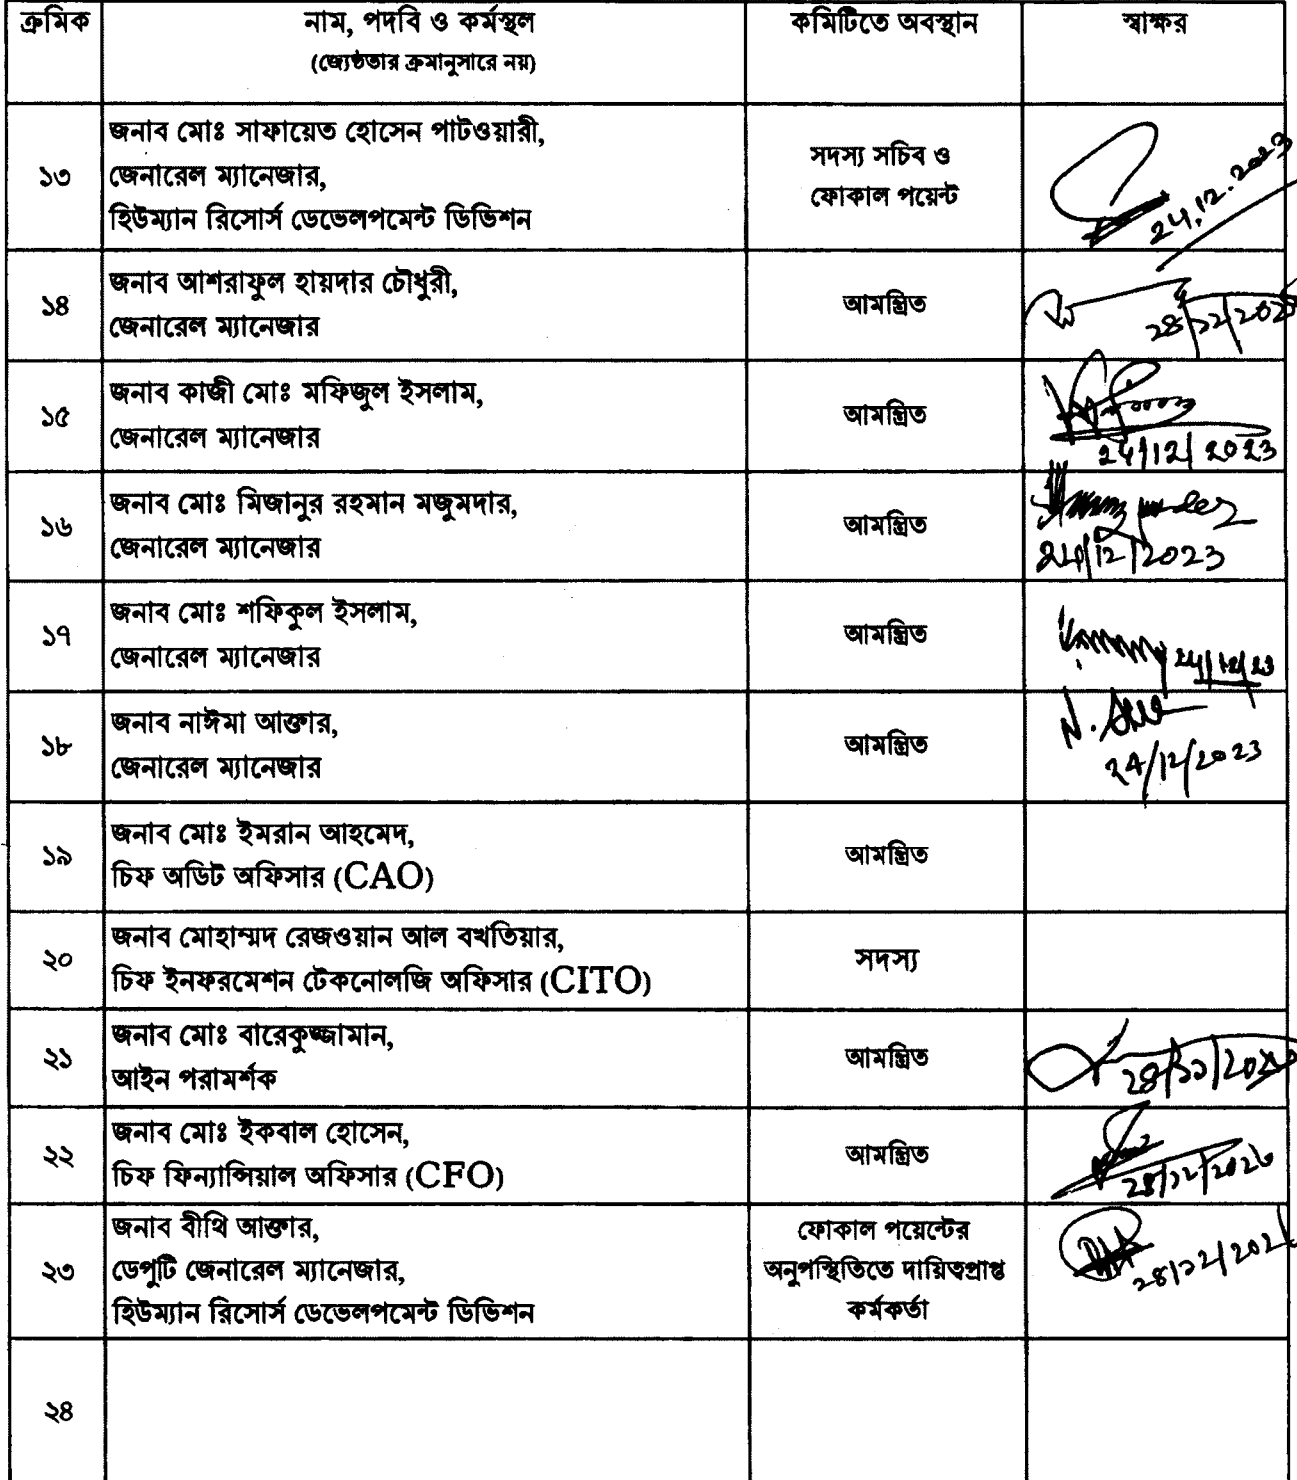 ক্রমিক
নাম, পদবি ও কর্মস্থল
(জ্যেষ্ঠতার ক্রমানুসারে নয়)
কমিটিতে অবস্থান
স্বাক্ষর
১৩
জনাব মোঃ সাফায়েত হোসেন পাটওয়ারী,
জেনারেল ম্যানেজার,
হিউম্যান রিসোর্স ডেভেলপমেন্ট ডিভিশন
সদস্য সচিব ও
ফোকাল পয়েন্ট
24.12.2023
১৪
জনাব আশরাফুল হায়দার চৌধুরী,
জেনারেল ম্যানেজার
আমন্ত্রিত
১৫
জনাব কাজী মোঃ মফিজুল ইসলাম,
জেনারেল ম্যানেজার
আমন্ত্রিত
24/12/2023
১৬
জনাব মোঃ মিজানুর রহমান মজুমদার,
জেনারেল ম্যানেজার
আমন্ত্রিত
24/12/2023
১৭
জনাব মোঃ শফিকুল ইসলাম,
জেনারেল ম্যানেজার
আমন্ত্রিত
24/12/23
১৮
জনাব নাঈমা আক্তার,
জেনারেল ম্যানেজার
আমন্ত্রিত
24/12/2023
১৯
জনাব মোঃ ইমরান আহমেদ,
চিফ অডিট অফিসার (CAO)
আমন্ত্রিত
২০
জনাব মোহাম্মদ রেজওয়ান আল বখতিয়ার,
চিফ ইনফরমেশন টেকনোলজি অফিসার (CITO)
সদস্য
২১
জনাব মোঃ বারেকুজ্জামান,
আইন পরামর্শক
আমন্ত্রিত
২২
জনাব মোঃ ইকবাল হোসেন,
চিফ ফিন্যান্সিয়াল অফিসার (CFO)
আমন্ত্রিত
২৪/১২/২০২৩
২৩
জনাব বীথি আক্তার,
ডেপুটি জেনারেল ম্যানেজার,
হিউম্যান রিসোর্স ডেভেলপমেন্ট ডিভিশন
ফোকাল পয়েন্টের
অনুপস্থিতিতে দায়িত্বপ্রাপ্ত
কর্মকর্তা
২৪